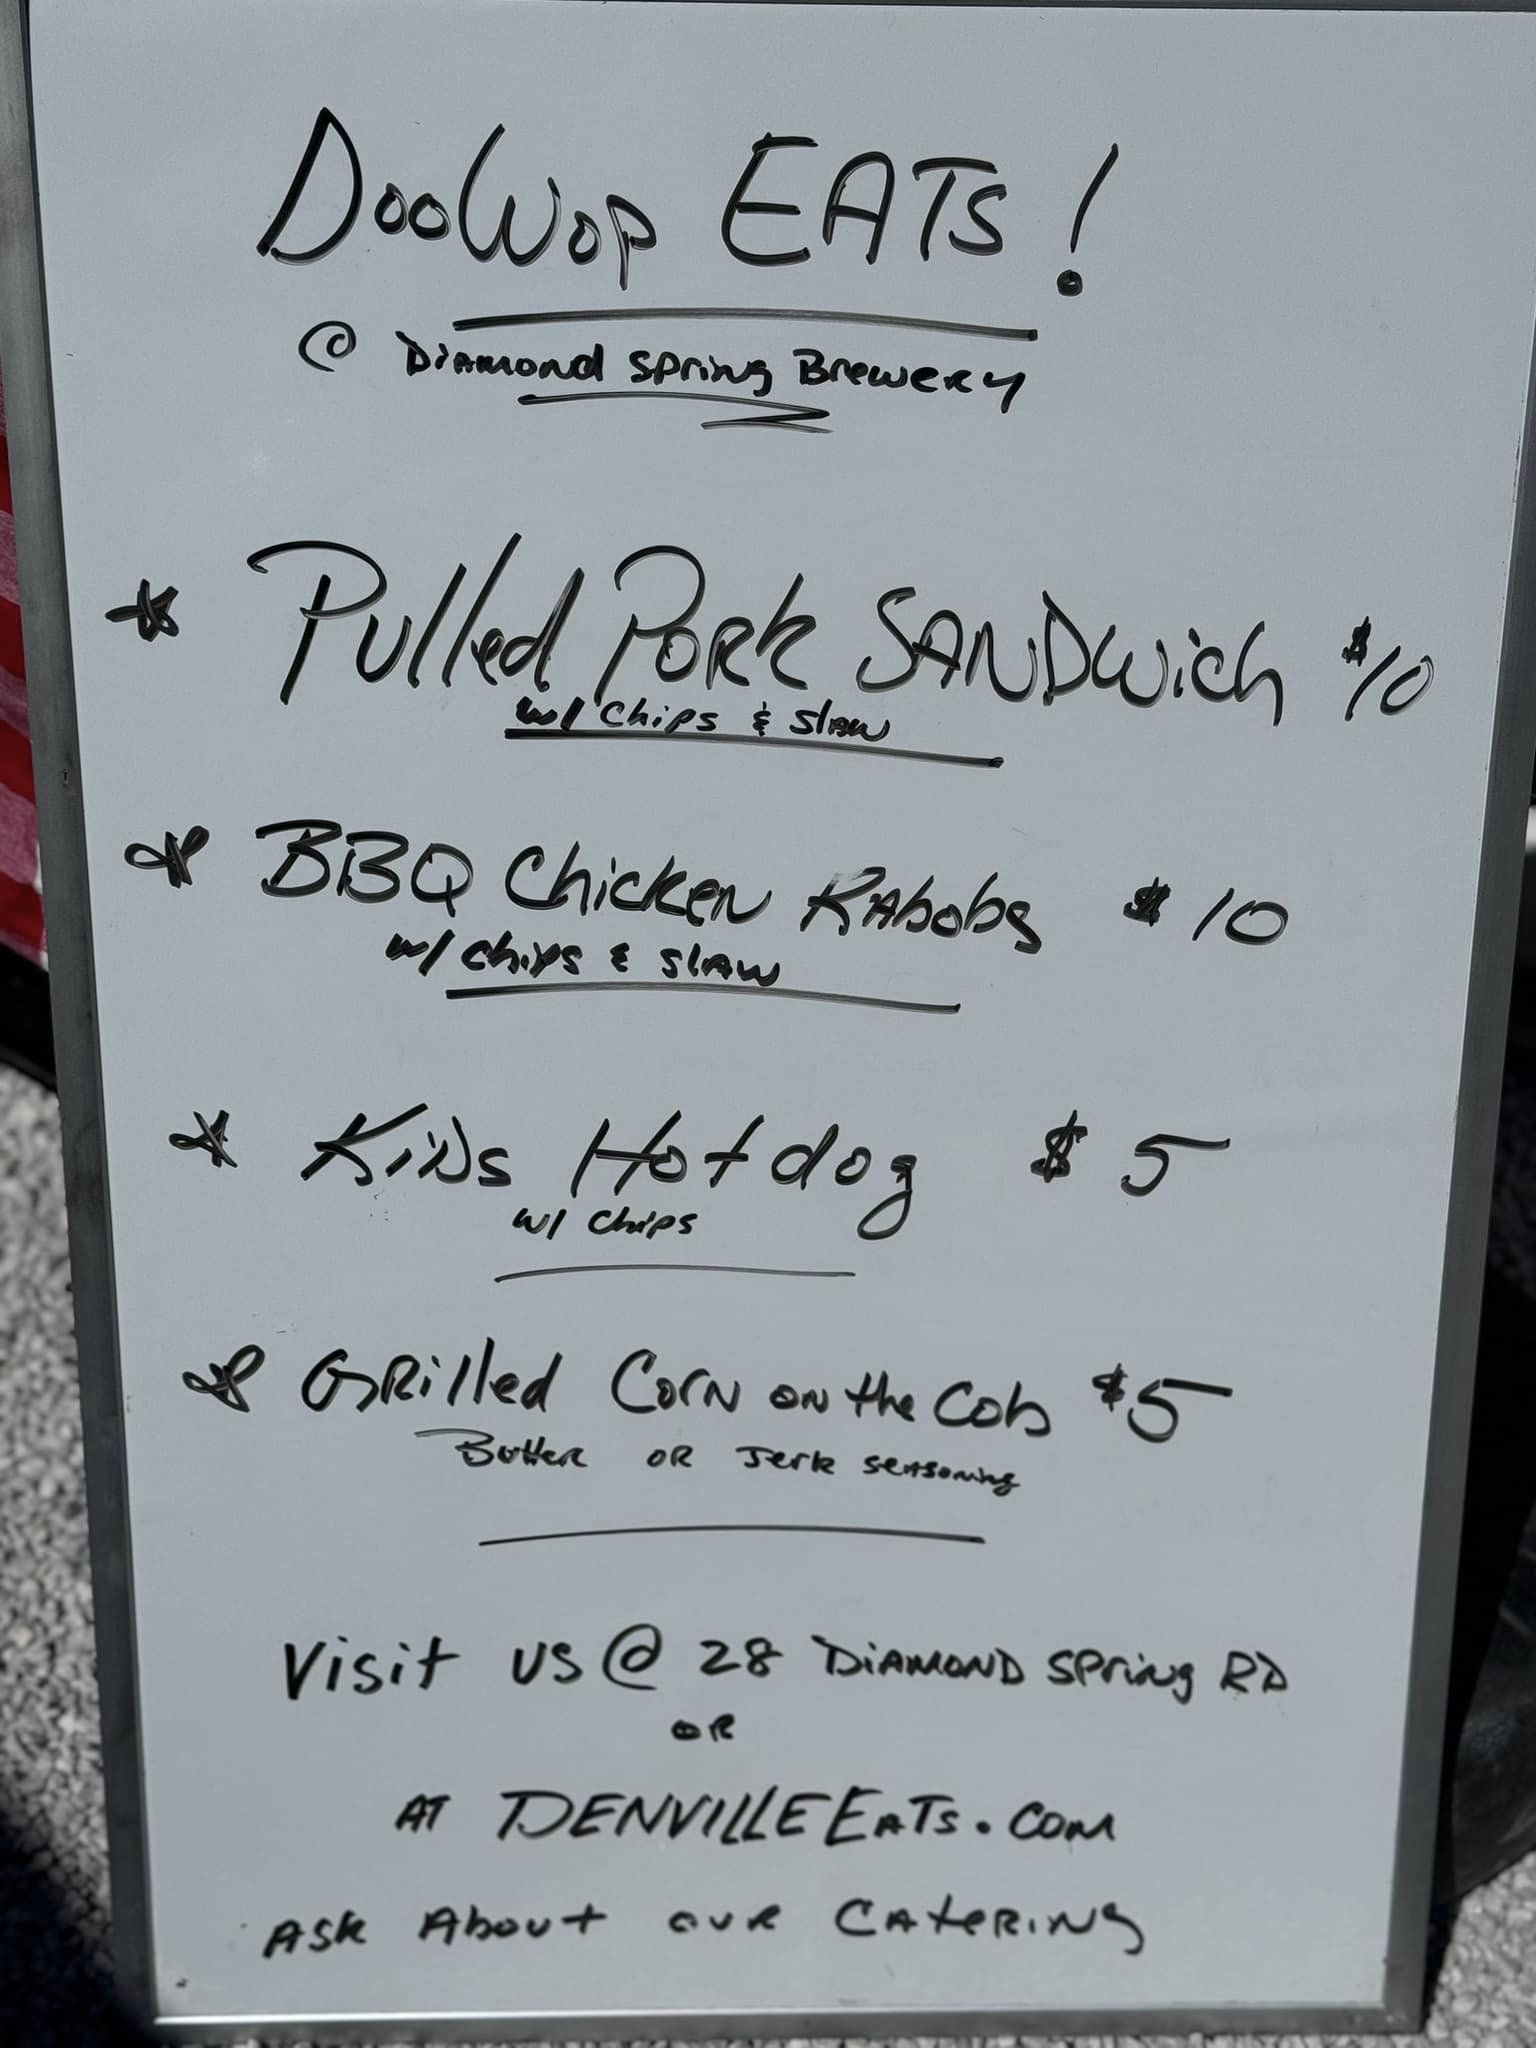 DooWop EATS!
@ Diamond Spring Brewery
* Pulled Pork SANDwich $10
w/ Chips & Slaw
* BBQ Chicken Kabobs $10
w/ Chips & Slaw
* Kids Hot dog $5
w/ Chips
* Grilled Corn on the Cob $5
Butter or Jerk seasoning
Visit us @ 28 Diamond Spring RD
or
AT DENVILLEEATS.COM
ASK About our Catering